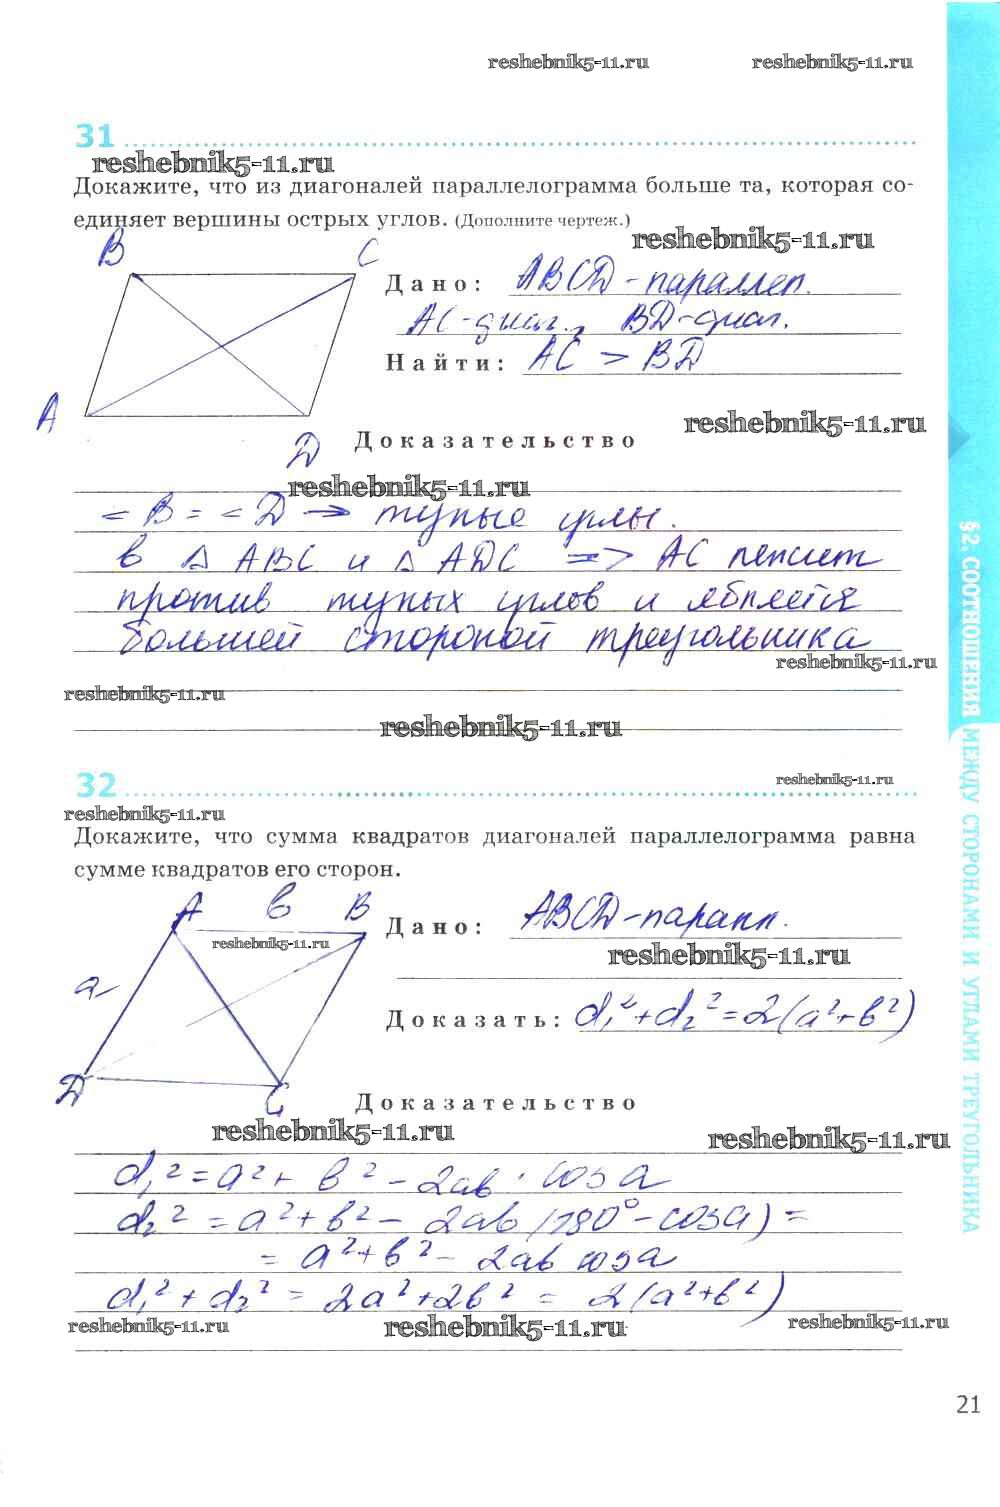 reshebnik5-11.ru reshebnik5-11.ru
31
reshebnik5-11.ru
Докажите, что из диагоналей параллелограмма больше та, которая со-
единяет вершины острых углов. (Дополните чертеж.)
reshebnik5-11.ru
B C
Дано: ABCD - параллел.
AC-диаг., BD-диаг.
Найти: AC > BD
A
reshebnik5-11.ru
D
Доказательство
reshebnik5-11.ru
< B = < D → тупые углы.
в △ ABC и △ ADC => AC лежит
против тупых углов и является
большей стороной треугольника
reshebnik5-11.ru
reshebnik5-11.ru
reshebnik5-11.ru
32
reshebnik5-11.ru
reshebnik5-11.ru
Докажите, что сумма квадратов диагоналей параллелограмма равна
сумме квадратов его сторон.
A в B
Дано: ABCD-паралл.
reshebnik5-11.ru
reshebnik5-11.ru
a
Доказать: d₁²+d₂²=2(a²+b²)
D C
Доказательство
reshebnik5-11.ru
reshebnik5-11.ru
d₁²=a²+b²-2ab·cosa
d₂²=a²+b²-2ab(180°-cosa)=
=a²+b²-2ab cosa
d₁²+d₂²=2a²+2b²=2(a²+b²)
reshebnik5-11.ru reshebnik5-11.ru reshebnik5-11.ru
21
§2. СООТНОШЕНИЯ МЕЖДУ СТОРОНАМИ И УГЛАМИ ТРЕУГОЛЬНИКА